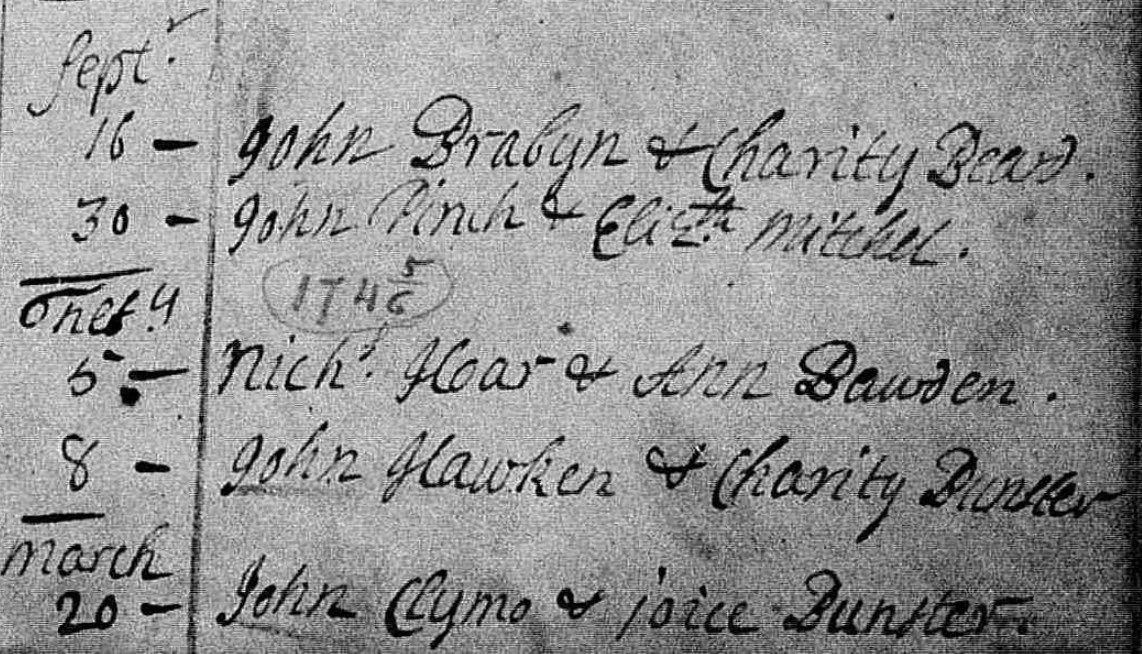 Sept.r
16 — John Brabyn & Charity Beard.
30 — John Pinch & Eliz.th Mitchel.
174 5/6
5 — Nich.s Hoar & Ann Bawden.
8 — John Hawken & Charity Dunster
March
20 — John Clymo & Joice Dunster.